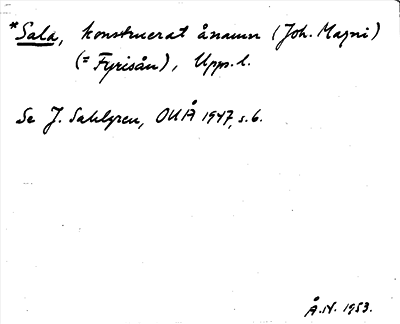 *Sala, konstruerat ånamn (Joh. Magni)
(= Fyrisån), Upps. l.
Se J. Sahlgren, OUÅ 1947, s. 6.
Å.N. 1953.